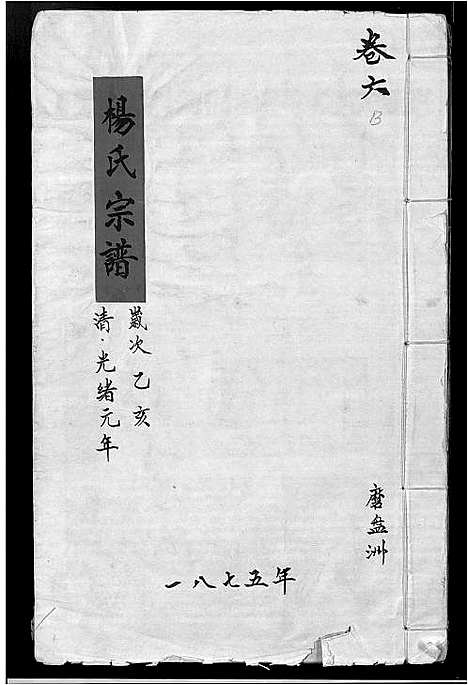 卷六
B
磨盘洲
楊氏宗譜
歲次乙亥
清·光緒元年
一八七五年